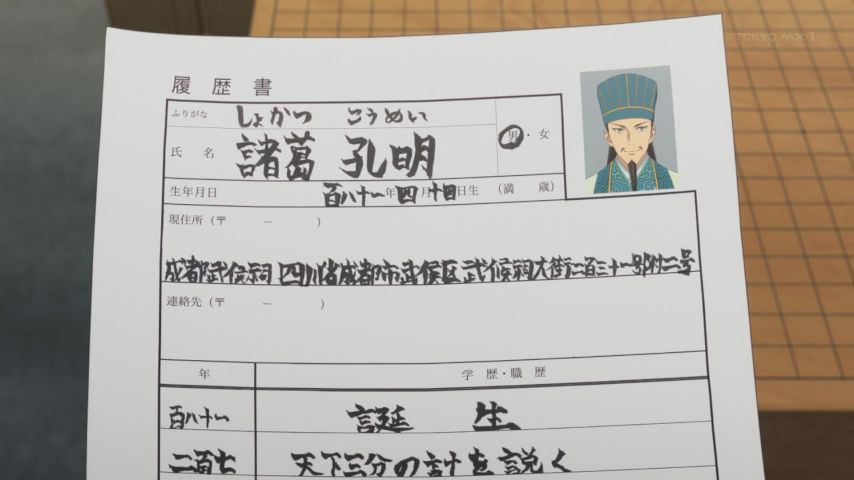 TOKYO MX 1
履歴書
ふりがな しょかつ こうめい
男・女
氏 名 諸葛 孔明
生年月日 百八十一年四月十四日生 (満 歳)
現住所(〒 − )
成都武侯祠 四川省成都市武侯区武候祠大街二百三十一号附二号
連絡先(〒 − )
年 学歴・職歴
百八十一 誕 生
二百七 天下三分の計を説く